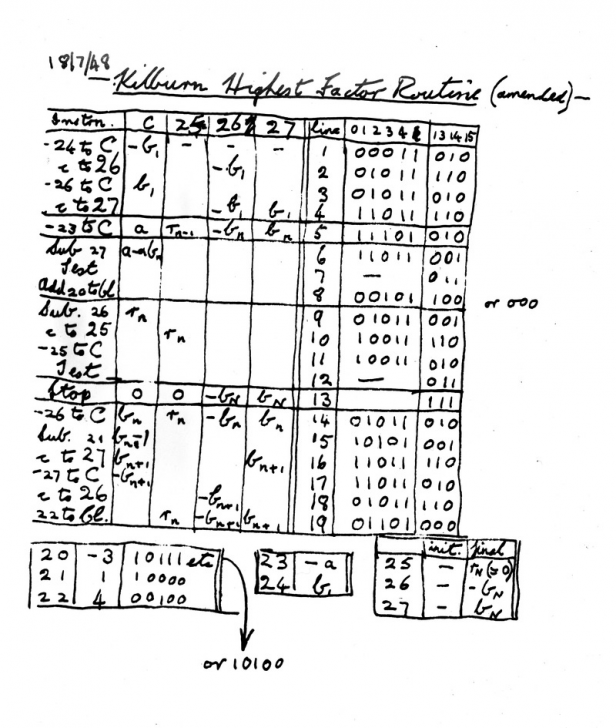 18/7/48
Kilburn Highest Factor Routine (amended) —
Instrn. C 25 26 27 line 0 1 2 3 4 13 14 15
-24 to C -b₁ - - - 1 00011 010
c to 26 -b₁ 2 01011 110
-26 to C b₁ 3 01011 010
c to 27 -b₁ b₁ 4 11011 110
-23 to C a rₙ₋₁ -bₙ bₙ 5 11101 010
Sub 27 a-bₙ 6 11011 001
Test 7 — 011
Add 20 to bl. 8 00101 100 or 000
Sub. 26 rₙ 9 01011 001
c to 25 rₙ 10 10011 110
-25 to C 11 10011 010
Test 12 — 011
Stop 0 0 -b_N b_N 13 111
-26 to C bₙ rₙ -bₙ bₙ 14 01011 010
Sub. 21 bₙ₊₁ 15 10101 001
c to 27 bₙ₊₁ bₙ₊₁ 16 11011 110
-27 to C -bₙ₊₁ 17 11011 010
c to 26 -bₙ₊₁ 18 01011 110
22 to bl. rₙ -bₙ₊₁ bₙ₊₁ 19 01101 000
20 -3 10111 etc
21 1 10000
22 4 00100
or 10100
23 -a
24 b₁
init. final
25 - r_N (=0)
26 - -b_N
27 - b_N